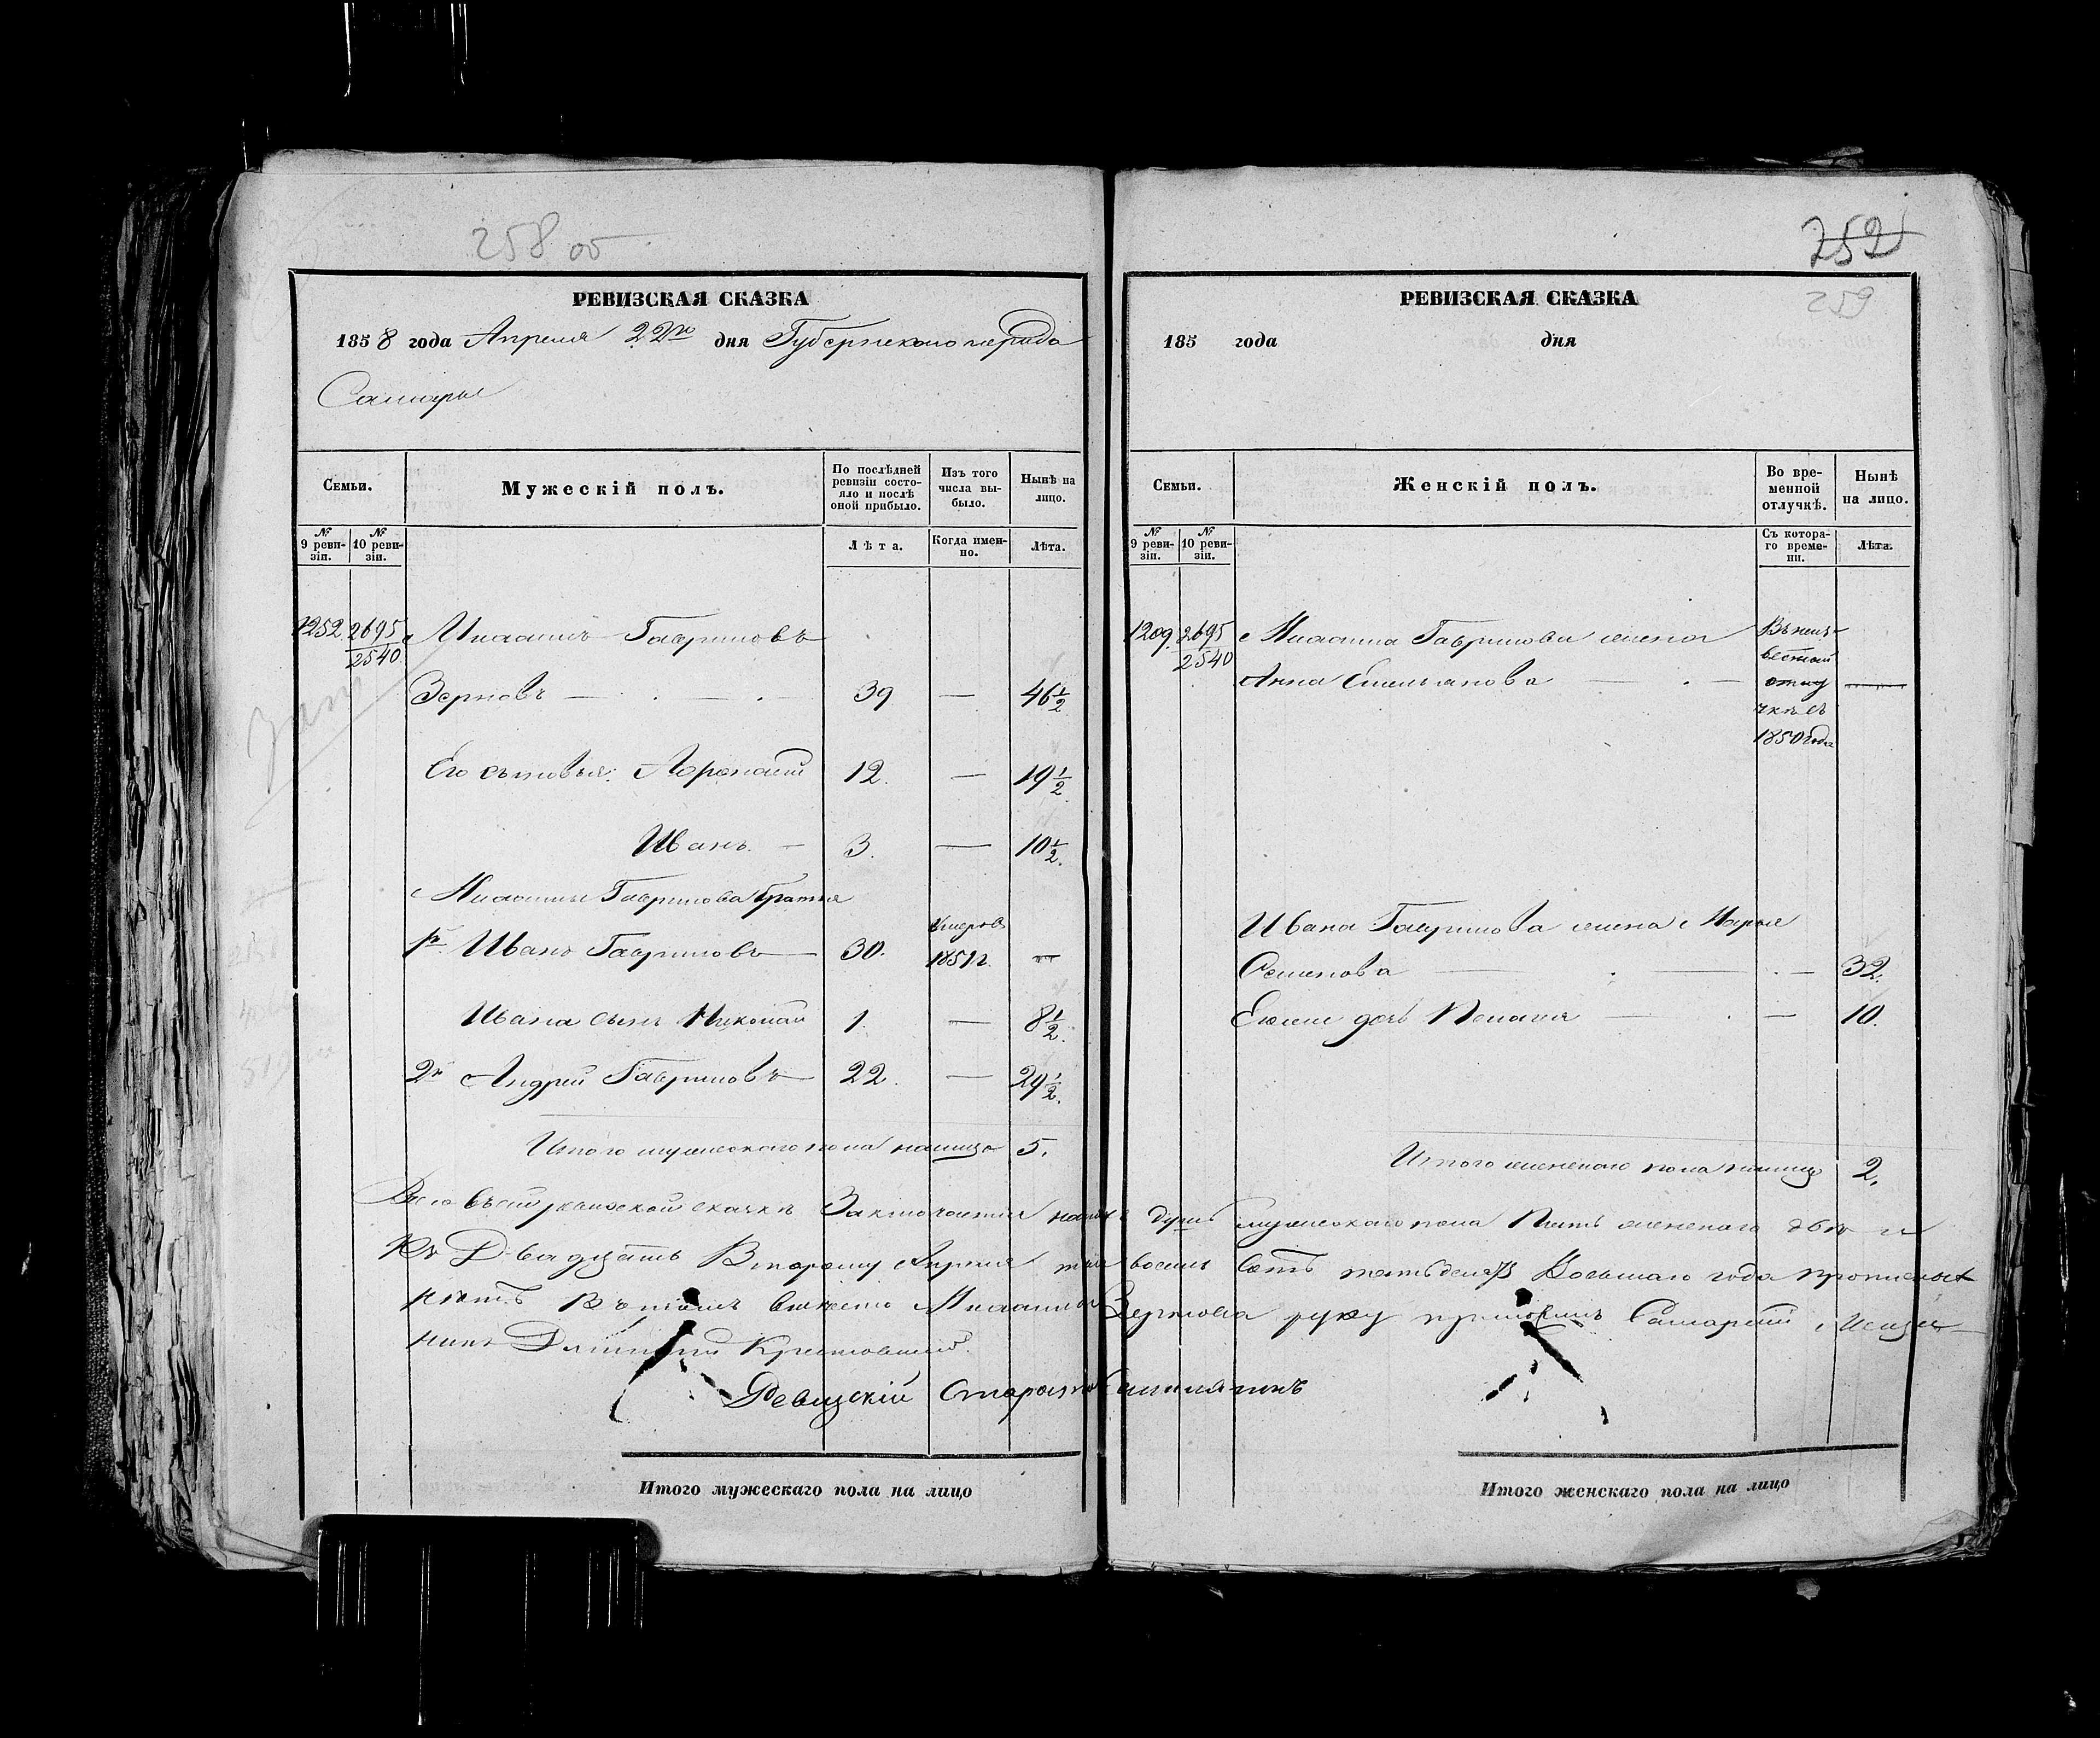 258 об
РЕВИЗСКАЯ СКАЗКА
1858 года Апреля 22го дня Губернского города
Самары
Семьи.
Мужескій полъ.
По послѣдней ревизіи состо-
яло и послѣ
оной прибыло.
Изъ того
числа вы-
было.
Нынѣ на
лицо.
№
9 реви-
зіи.
№
10 реви-
зіи.
Лѣта.
Когда имен-
но.
Лѣта.
1252 2695
2540
Гавриловъ
Зерновъ — 39 — 46½
Его сыновья: Афанасий 12. — 19½
Иванъ. — 3. — 10½
Гаврилова братья
1й Иванъ Гавриловъ — 30. умеръ въ 1851 г. —
Ивана сынъ Николай 1. — 8½
2й Андрей Гавриловъ 22. — 29½
Итого мужеского пола налицо 5.
Итого мужескаго пола на лицо
252
259
РЕВИЗСКАЯ СКАЗКА
185 года дня
Семьи.
Женскій полъ.
Во вре-
менной
отлучкѣ.
Нынѣ
на лицо.
№
9 реви-
зіи.
№
10 реви-
зіи.
Съ котора-
го време-
ни.
Лѣта.
1209. 2695
2540
Гаврилова жена
Анна Емельянова — —
Въ неиз-
вестной
отлу
чкѣ съ
1850 года
Ивана Гаврилова жена Марья
Семенова — 32.
дочь Пелагия — 10.
Итого женского пола налицо 2.
Всего въ сей ревизской сказкѣ Заключается душъ мужеского пола Пять женского две и
Къ Двадцать Второму Апреля восемь сотъ пятьдесятъ Восьмаго года
въ томъ вместо Зернова руку приложилъ Самарский Меща-
нинъ Дмитрий
Ревизскій Староста
Итого женскаго пола на лицо